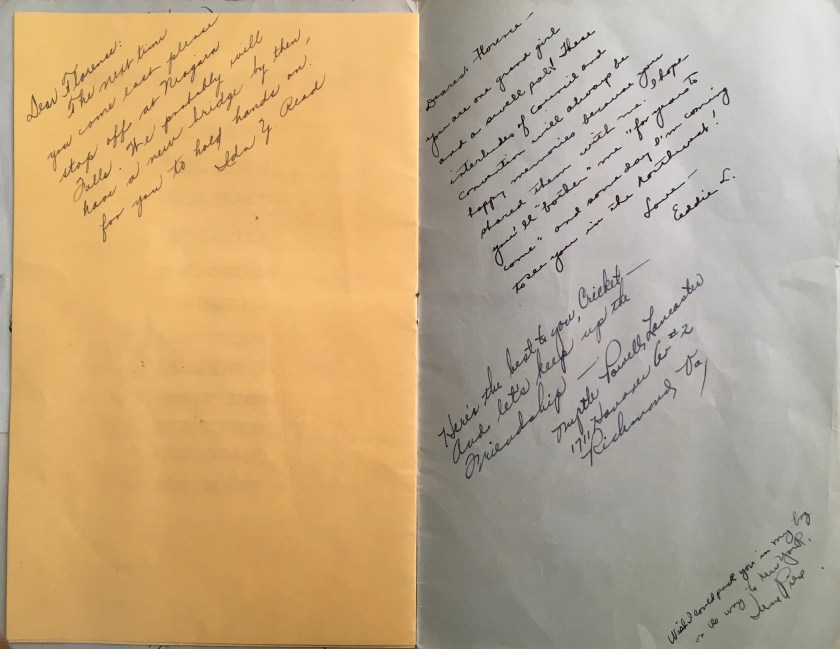 Dear Florence:
The next time
you come east please
stop off at Niagara
Falls. We probably will
have a new bridge by then,
for you to hold hands on.
Ida Y Read
Dearest Florence —
You are one grand girl
and a swell pal! These
interludes of Council and
convention will always be
happy memories because you
shared them with me. I hope
you'll "bother" me "for years to
come" and some day I'm coming
to see you in the northwest!
Love —
Eddie L.
Here's the best to you, Cricket —
And let's keep up the
Friendship —
Myrtle Powell Lancaster
1711 Hanover Av #2
Richmond, Va,
Wish I could pack you in my bag
on way to New York.
June